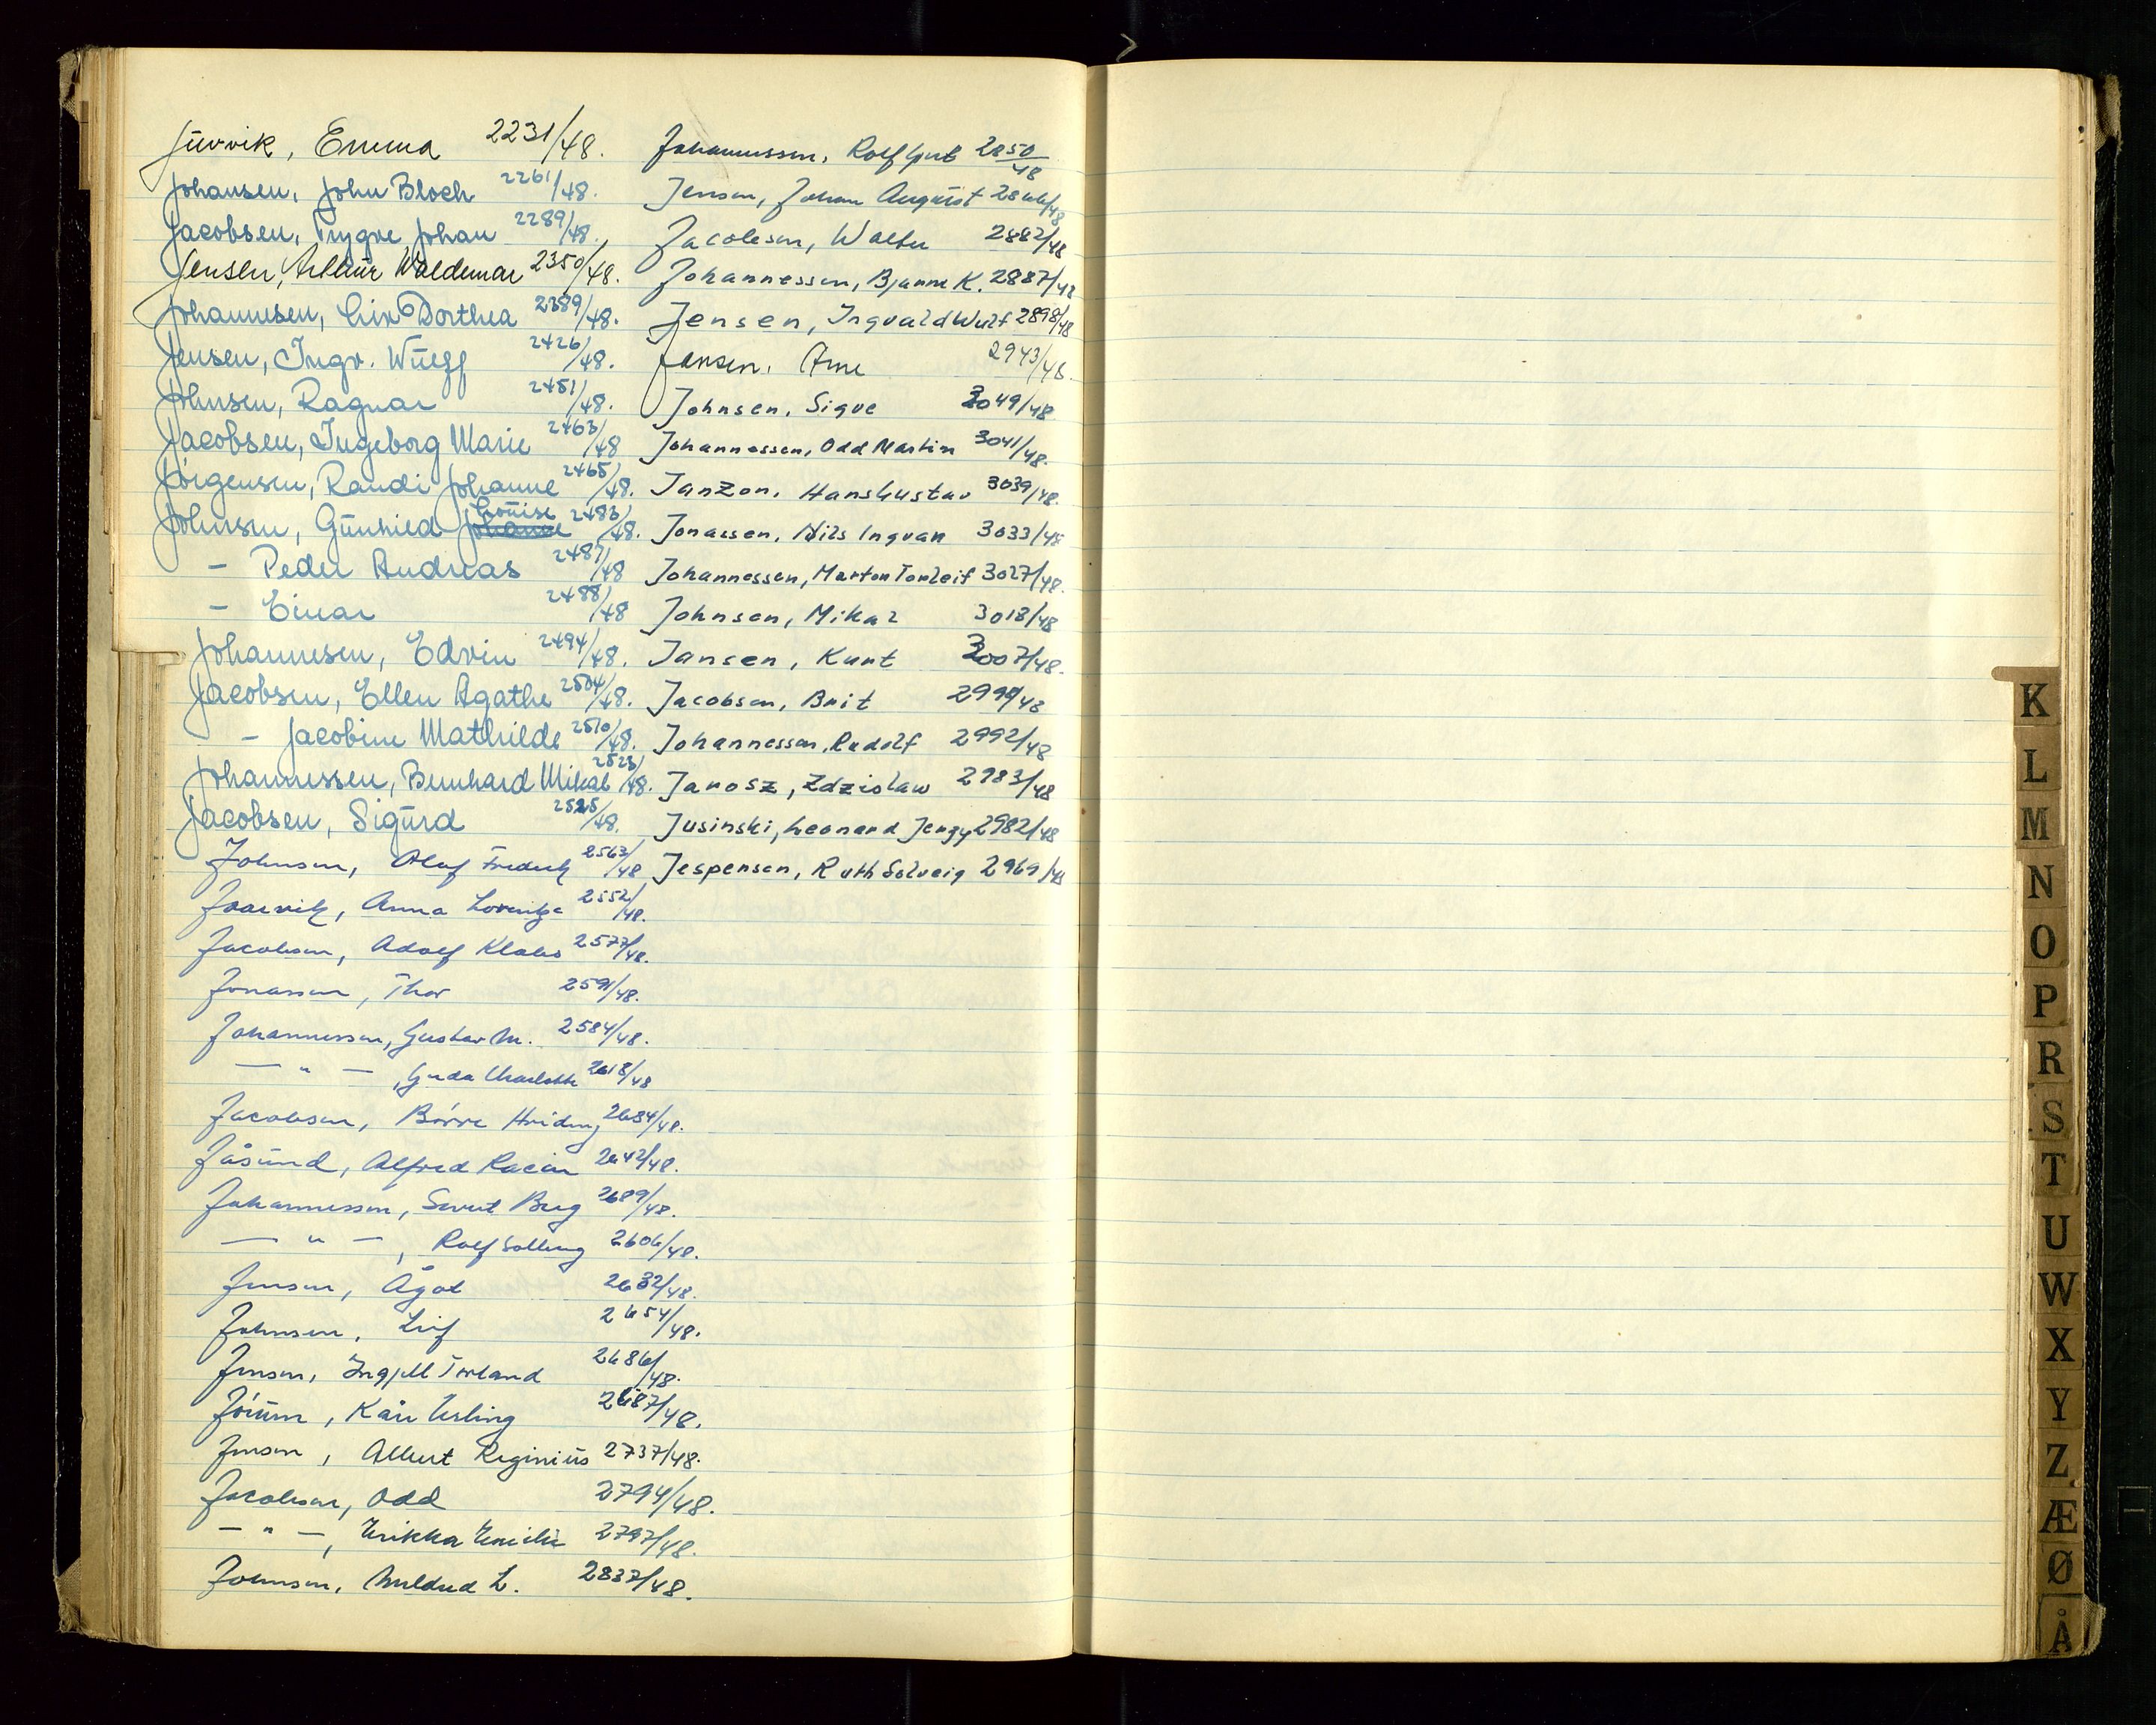 Juvvik, Emma 2231/48.
Johansen, John Bloch 2261/48.
Jacobsen, Trygve Johan 2289/48.
Jensen, Arthur Waldemar 2350/48.
Johannesen, Dorthea 2389/48.
Jensen, Ingv. Wulff 2426/48.
Johnsen, Ragnar 2451/48.
Jacobsen, Ingeborg Marie 2463/48
Jörgensen, Randi Johanne 2465/48.
Johnsen, Gunhild Johanne Louise 2483/48.
- Peder Andreas 2487/48
- Einar 2488/48
Johannesen, Edvin 2494/48.
Jacobsen, Ellen Agathe 2504/48.
- Jacobine Mathilde 2510/48.
Johannessen, Bernhard Mikal 2523/48.
Jacobsen, Sigurd 2525/48.
Johnsen, Olaf Fredrik 2563/48
Joarvik, Anna 2552/48.
Jacobsen, Adolf Klabo 2577/48.
Jonassen, Thor 2591/48.
Johannessen, Gustav M. 2584/48.
— " —, Gerda Charlotte 2618/48
Jacobsen, Börre 2634/48.
Jåsund, Alfred 2642/48.
Johannessen, Sivert Berg 2689/48.
— " —, Rolf Solberg 2606/48.
Jensen, Ågot 2632/48.
Johnsen, Leif 2654/48.
Jensen, Ingjell Torland 2686/48.
Kåre Erling 2687/48.
Jensen, Albert Reginius 2737/48.
Jacobsen, Odd 2794/48.
— " —, Erikka Emilie 2797/48.
Johnsen, Mildrid L. 2837/48.
Johannessen, Rolf 2850/48
Jensen, Johan August 2866/48
Jacobsen, Walter 2882/48
Johannessen, Bjarne K. 2887/48
Jensen, Ingvald Wulf 2898/48
Jensen, Arne 2943/48.
Johnsen, Sigve 3049/48
Johannessen, Odd Martin 3041/48.
Janzon, Hans Gustav 3039/48.
Jonassen, Nils Ingvar 3033/48
Johannessen, Marton Torleif 3027/48.
Johnsen, Mikal 3018/48
Jansen, Kurt 3007/48.
Jacobsen, Brit 2999/48
Johannessen, Rudolf 2992/48
Janosz, Zdzislaw 2983/48
Jusinski, Leonard Jerzy 2982/48
Jespersen, Ruth Solveig 2969/48
K
L
M
N
O
P
R
S
T
U
W
X
Y
Z
Æ
Ø
Å